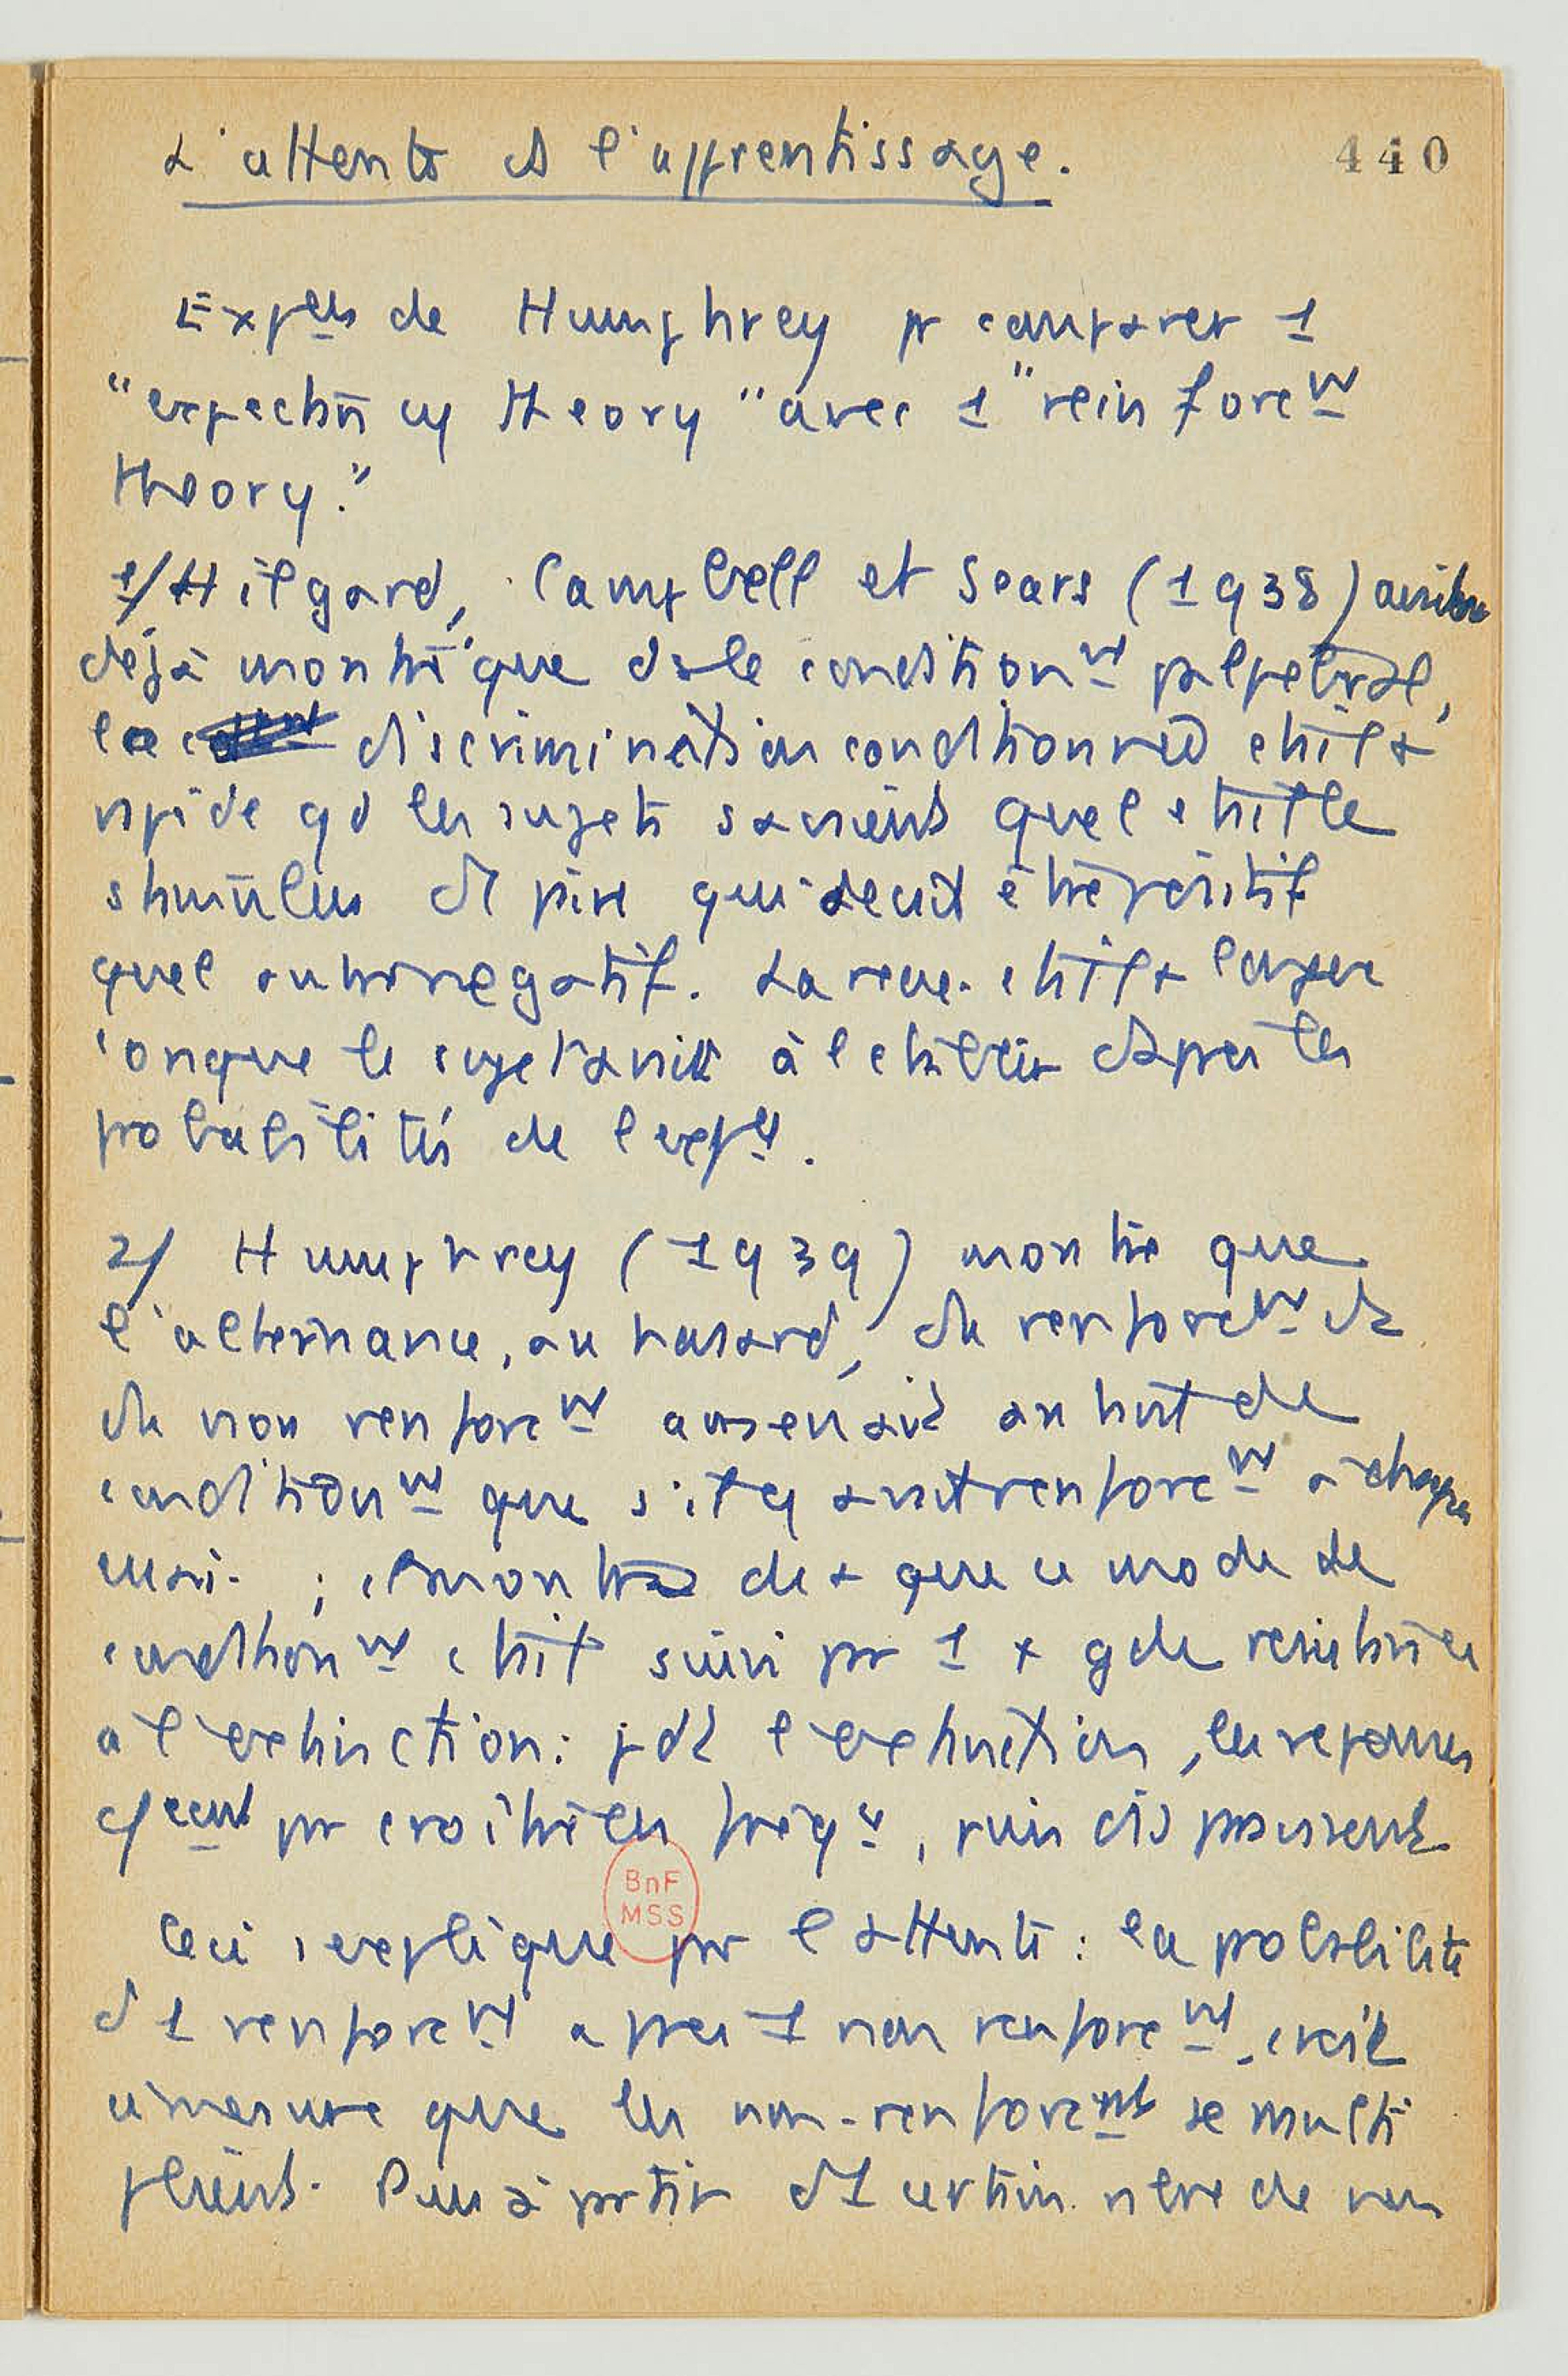 L'attente et l'apprentissage.
440
Expces de Humphrey pr comparer 1
"expectancy theory" avec 1 "reinforcmt
theory."
1/ Hilgard, Campbell et Sears (1938) avaient
déjà montré que ds le conditionnt palpébral,
la discrimination conditionnée était +
rapide qd les sujets savaient quel était le
stimulus et pire qui devait être positif
quel autre négatif. La reac. était + longue
lorsque le sujet avait à l'établir d'après les
probabilités de l'expce.
2/ Humphrey (1939) montre que
l'alternance, au hasard, du renforcmt et
du non renforcmt amenait au but de
conditionmt que s'il y avait renforcmt à chaque
essai ; il montra de + que ce mode de
conditionnt était suivi par 1 + gde résistance
à l'extinction : pdt l'extinction, les réponses
commencent par croître en fréqce, puis disparaissent
Ceci s'explique par l'attente : la probabilité
d'1 renforcmt après 1 non renforcmt croît
à mesure que les non-renforcmts se multi
plient. Puis à partir d'1 certain nbre de non
BnF
MSS